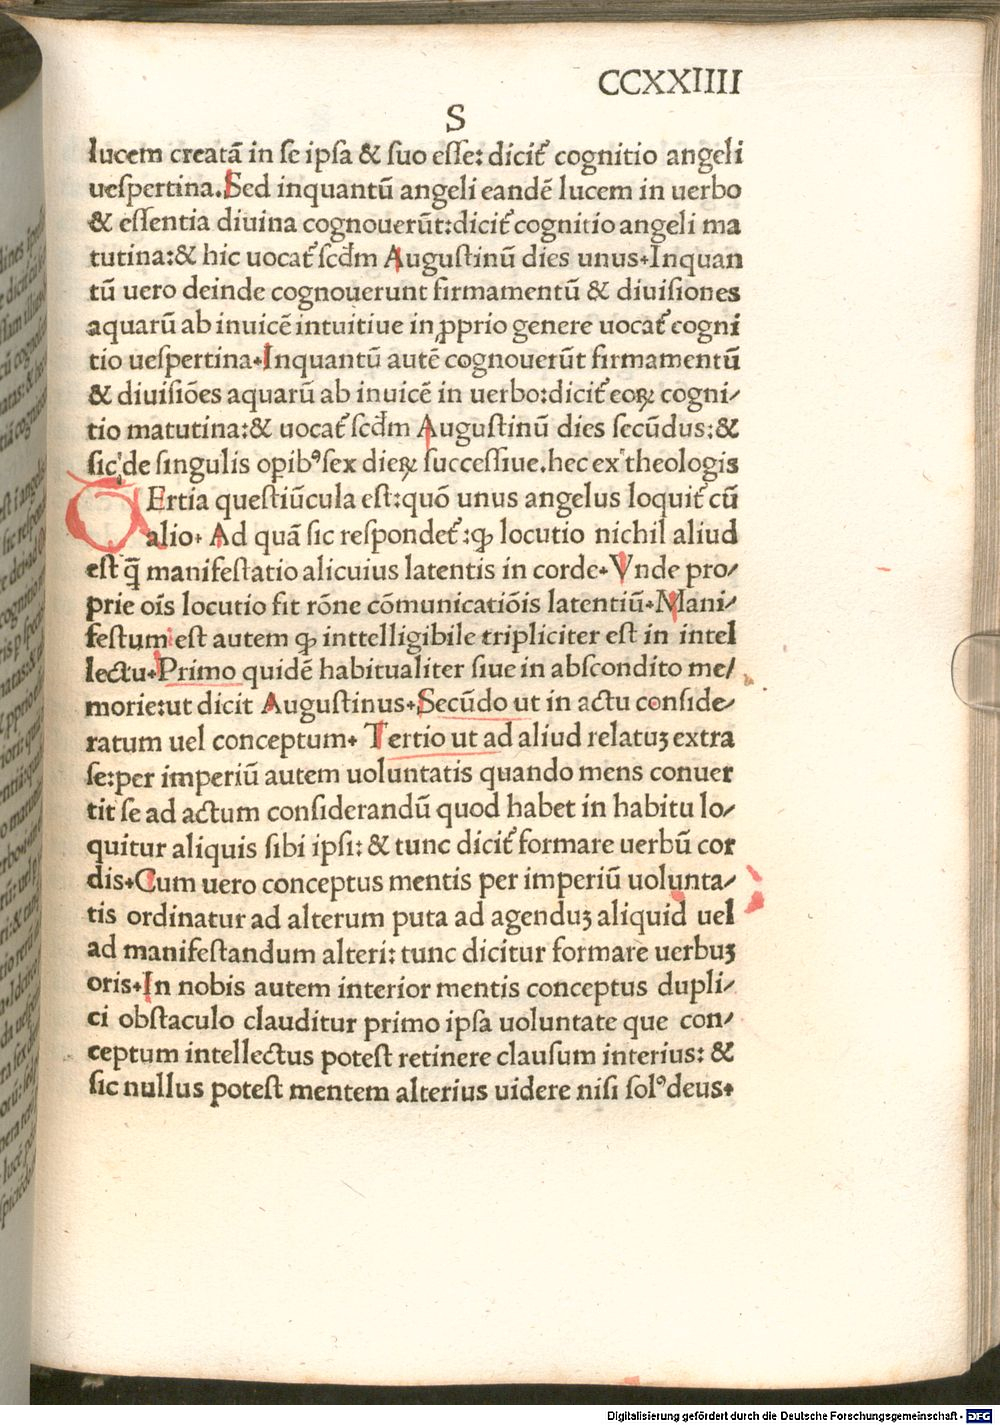 CCXXIIII
S
lucem creatã in se ipsa & suo esse: diciť cognitio angeli
uespertina. Sed inquantũ angeli eandẽ lucem in uerbo
& essentia diuina cognouerũt: diciť cognitio angeli ma
tutina: & hic uocať scđm Augustinũ dies unus. Inquan
tũ uero deinde cognouerunt firmamentũ & diuisiones
aquarũ ab inuicẽ intuitiue in ꝓprio genere uocať cogni
tio uespertina. Inquantũ autẽ cognouerũt firmamentũ
& diuisiões aquarũ ab inuicẽ in uerbo: diciť eoꝝ cogni/
tio matutina: & uocať scđm Augustinũ dies secũdus: &
sic de singulis opibꝰ sex dieꝝ successiue. hec ex theologis
Ertia questiũcula est: quõ unus angelus loquiť cũ
alio. Ad quã sic respondeť: ꝙ locutio nichil aliud
est q̃ manifestatio alicuius latentis in corde. Vnde pro/
prie oĩs locutio fit rõne cõmunicatiõis latentiũ. Mani/
festum est autem ꝙ inttelligibile tripliciter est in intel
lectu. Primo quidẽ habitualiter siue in abscondito me/
morie: ut dicit Augustinus. Secũdo ut in actu conside/
ratum uel conceptum. Tertio ut ad aliud relatuꝫ extra
se: per imperiũ autem uoluntatis quando mens conuer
tit se ad actum considerandũ quod habet in habitu lo/
quitur aliquis sibi ipsi: & tunc diciť formare uerbũ cor
dis. Cum uero conceptus mentis per imperiũ uolunta/
tis ordinatur ad alterum puta ad agenduꝫ aliquid uel
ad manifestandum alteri: tunc dicitur formare uerbuꝫ
oris. In nobis autem interior mentis conceptus dupli/
ci obstaculo clauditur primo ipsa uoluntate que con/
ceptum intellectus potest retinere clausum interius: &
sic nullus potest mentem alterius uidere nisi solꝰ deus.
Digitalisierung gefördert durch die Deutsche Forschungsgemeinschaft - DFG